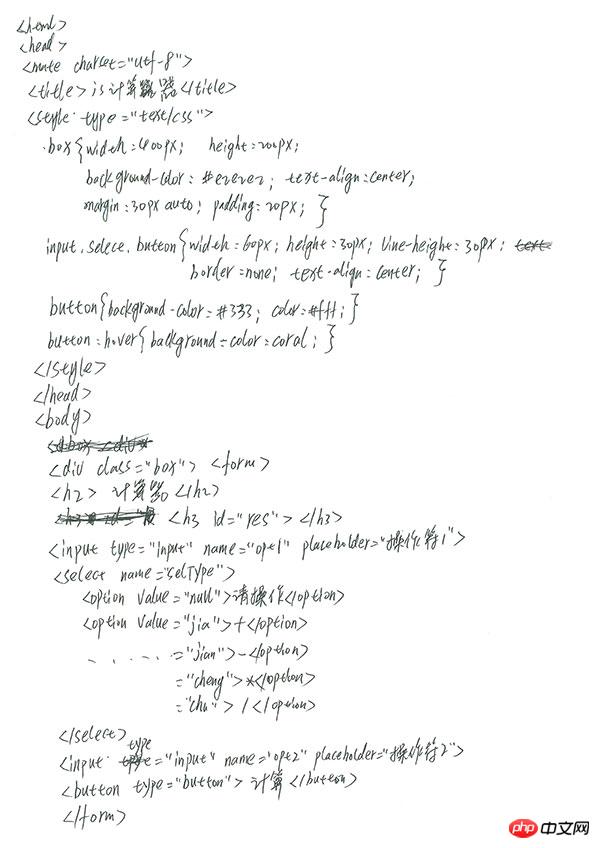 <html>
<head>
<mete charset="utf-8">
<title>js计算器</title>
<style type="text/css">
.box{width:400px; height:200px;
background-color: #e2e2e2; text-align:center;
margin:30px auto; padding:20px; }
input,selece,button{width:60px; height:30px; line-height:30px;
border:none; text-align:center; }
button{background-color:#333; color:#fff; }
button:hover{background-color:coral; }
</style>
</head>
<body>
<div class="box"> <form>
<h2> 计算器 </h2>
<h3 id="res"> </h3>
<input type="input" name="opt1" placeholder="操作符1">
<select name="selType">
<option value="null">请操作</option>
<option value="jia">+</option>
......="jian">-</option>
="cheng">*</option>
="chu"> / </option>
</select>
<input type="input" name="opt2" placeholder="操作符2">
<button type="button"> 计算 </button>
</form>
php 中文网